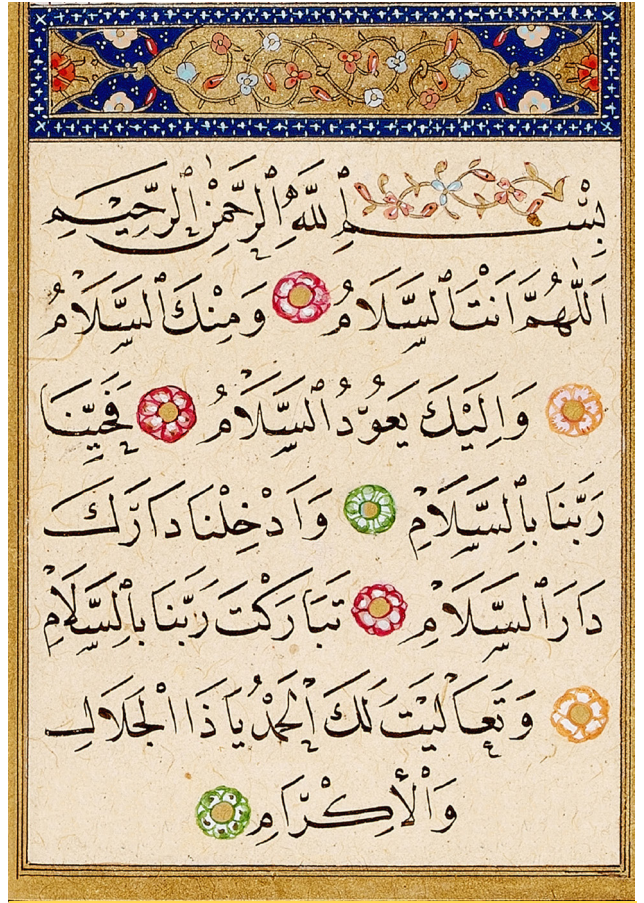 بِسْمِ اللّٰهِ الرَّحْمٰنِ الرَّحِيمِ
اَللّٰهُمَّ اَنْتَ السَّلَامُ وَمِنْكَ السَّلَامُ
وَاِلَيْكَ يَعُوْدُ السَّلَامُ فَحَيِّنَا
رَبَّنَا بِالسَّلَامِ وَاَدْخِلْنَا دَارَكَ
دَارَ السَّلَامِ تَبَارَكْتَ رَبَّنَا بِالسَّلَامِ
وَتَعَالَيْتَ لَكَ الْحَمْدُ يَا ذَا الْجَلَالِ
وَالْاِكْرَامِ